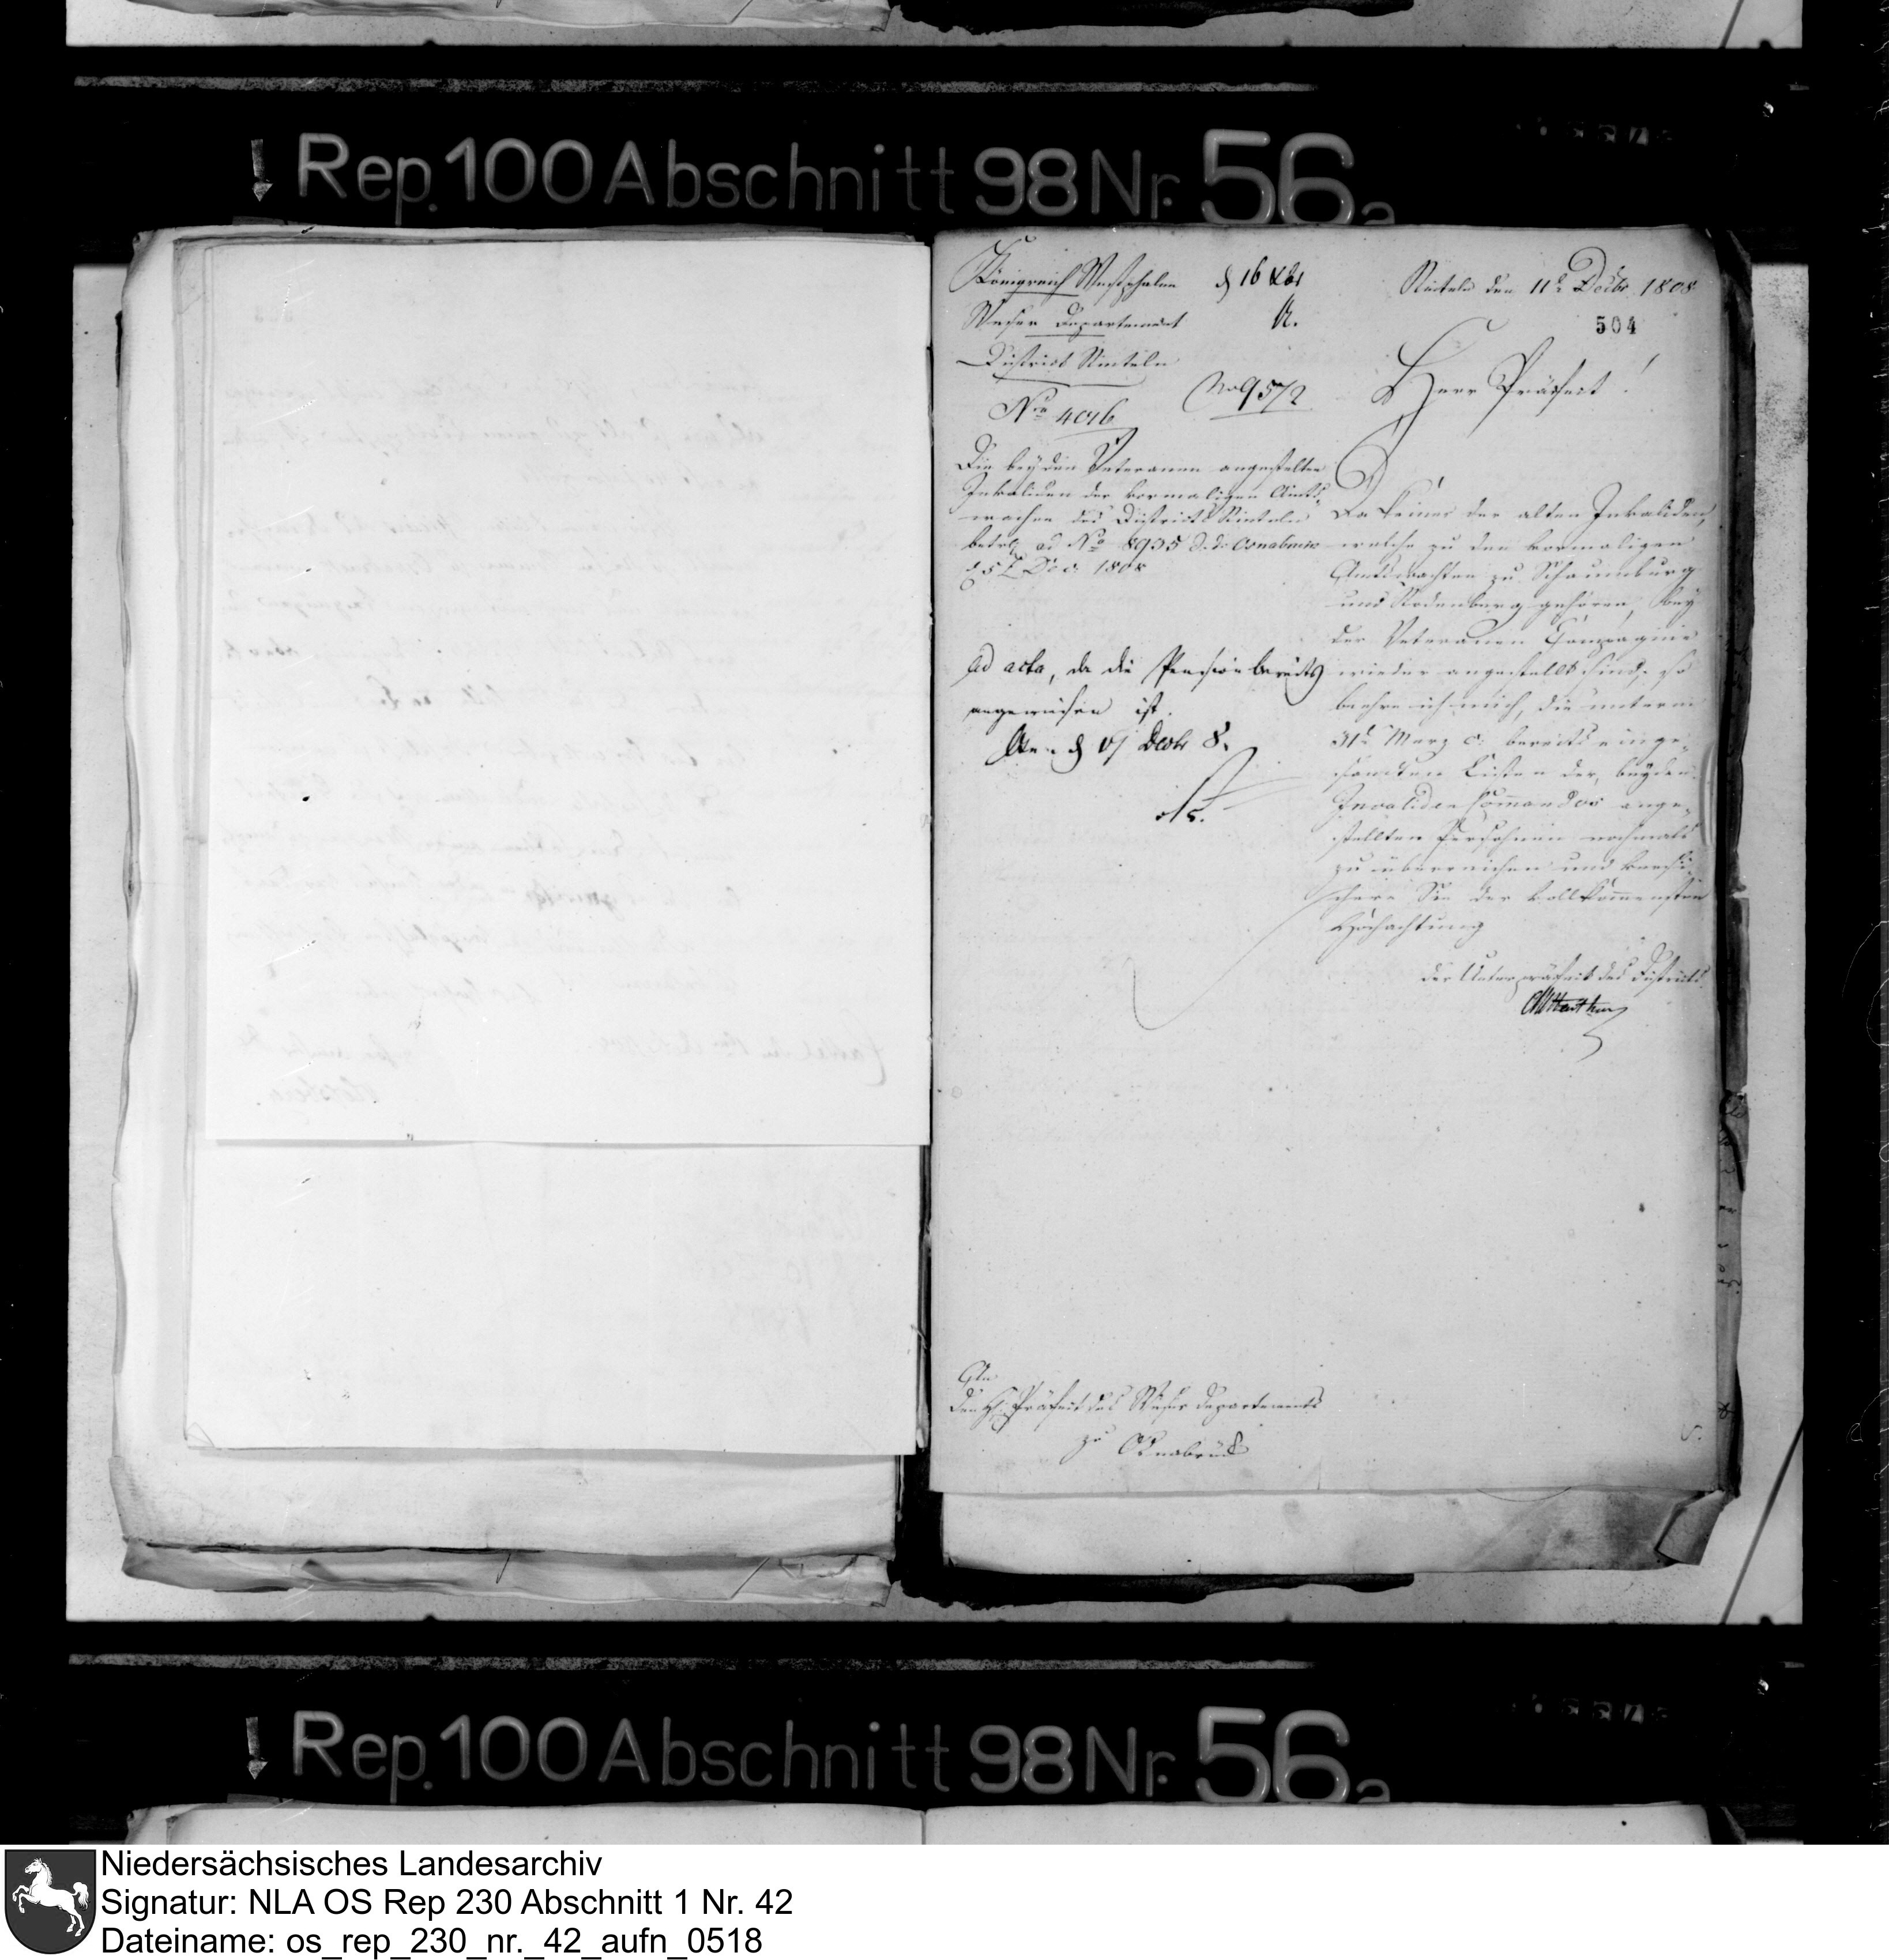 Rep. 100 Abschnitt 98 Nr. 56a
Königreich Westphalen
Weser Departement
District Rinteln
No 4096
16 Xbr
No 9572
Rinteln den 11t Decbr 1808
504
Herr Präfect!
Die bey den Veteranen angestellten
Invaliden der vormaligen Amts-
wachen des Districts Rinteln
betr. ad No 8935 d. d. Osnabrück
d 5t Dec. 1808
ad acta, da die Pension bereits
angewiesen ist.
Osn. d 17 Decbr 8.
Da keiner der alten Invaliden,
welche zu den vormaligen
Amtswachten zu Schaumburg
und Rodenberg gehören, bey
der Veteranen Compagnie
wieder angestellt sind, so
beehre ich mich, die unterm
31t März c. bereits einge-
sandten Listen der, beyden
Invaliden Commandos ange-
stellten Persohnen nochmals
zu überreichen und versi-
chere Sie der vollkommensten
Hochachtung
Der Unterpräfect des Districts
An
den H. Präfect des Weser Departements
zu Osnabrück
Rep. 100 Abschnitt 98 Nr. 56a
Niedersächsisches Landesarchiv
Signatur: NLA OS Rep 230 Abschnitt 1 Nr. 42
Dateiname: os_rep_230_nr._42_aufn_0518